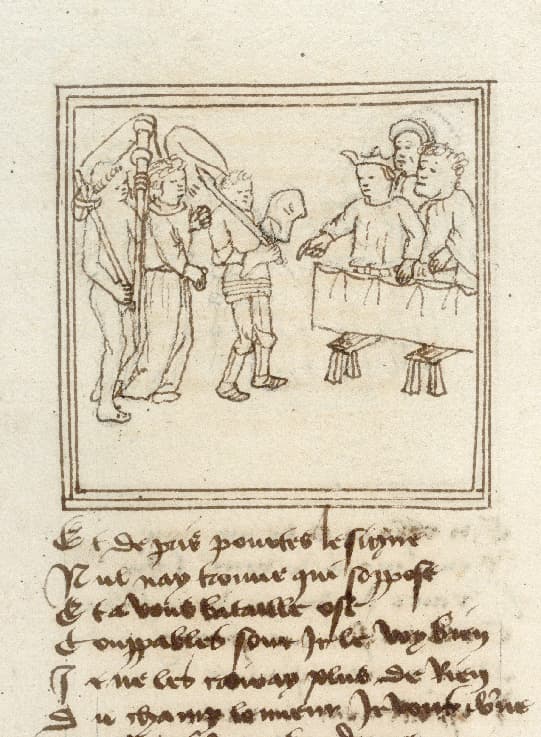 Et de paix pourtes le signe
Nul nay trouue qui soppose
Et a vous bataille ose
Couppables sont Je le voy bien
Je ne les plus de Rien
Du champ Je vous